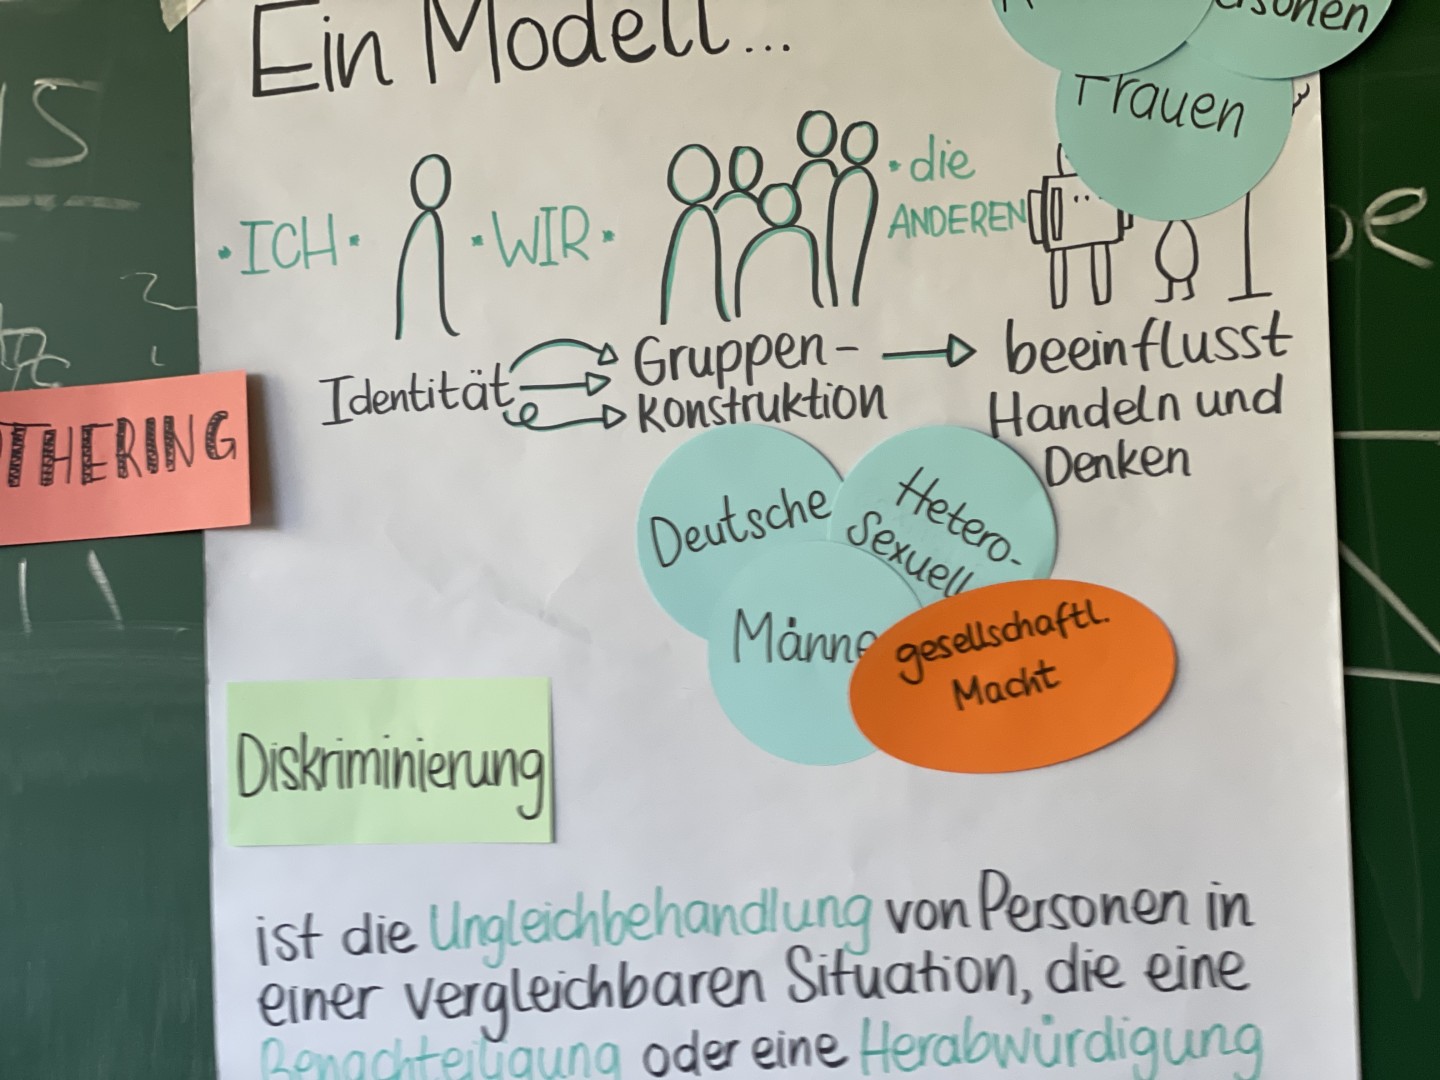 Ein Modell...
Frauen
• ICH •
• WIR •
• die
ANDEREN
Identität
Gruppen-
konstruktion
beeinflusst
Handeln und
Denken
Deutsche
Hetero-
sexuell
gesellschaftl.
Macht
Diskriminierung
ist die Ungleichbehandlung von Personen in
einer vergleichbaren Situation, die eine
Benachteiligung oder eine Herabwürdigung